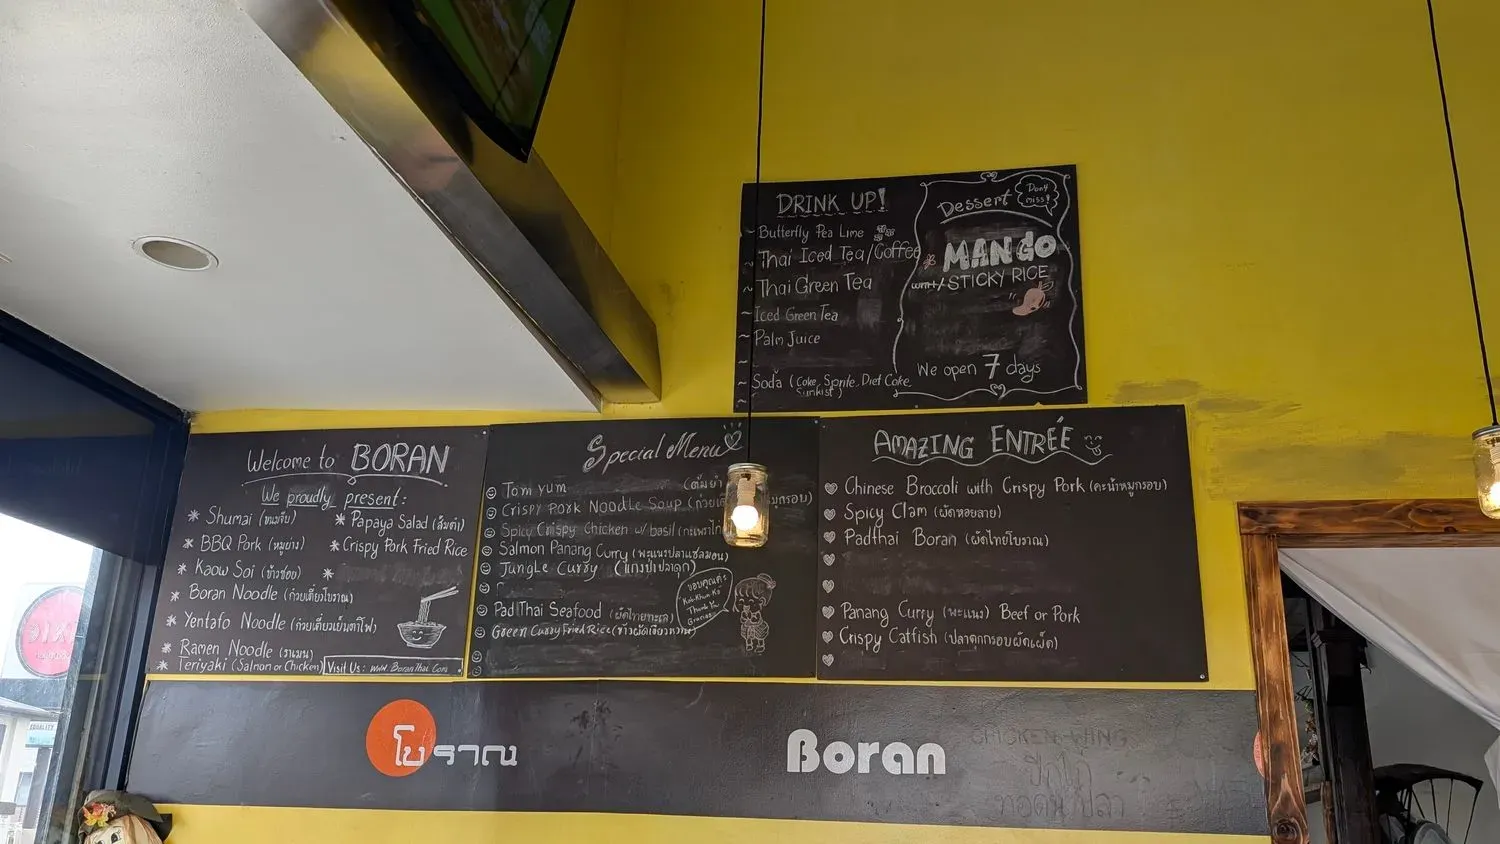 DRINK UP!
~ Butterfly Pea Lime
~ Thai Iced Tea/Coffee
~ Thai Green Tea
~ Iced Green Tea
~ Palm Juice
~ Soda (Coke, Sprite, Diet Coke,
Sunkist)
Dessert
Don't
miss!
MANGO
STICKY RICE
We open 7 days
Welcome to BORAN
We proudly present:
* Shumai (ขนมจีบ)
* BBQ Pork (หมูย่าง)
* Kaow Soi (ข้าวซอย)
* Boran Noodle (ก๋วยเตี๋ยวโบราณ)
* Yentafo Noodle (ก๋วยเตี๋ยวเย็นตาโฟ)
* Ramen Noodle (ราเมน)
* Teriyaki (Salmon or Chicken)
* Papaya Salad (ส้มตำ)
* Crispy Pork Fried Rice
*
Visit Us: www.BoranThai.Com
Special Menu
Tom yum (ต้มยำ
Crispy Pork Noodle Soup
Spicy Crispy Chicken w/ basil
Salmon Panang Curry (พะแนงปลาแซลมอน)
Jungle Curry (แกงป่าปลาดุก)
Pad Thai Seafood (ผัดไทยทะเล)
Green Curry Fried Rice (ข้าวผัดเขียวหวาน)
ขอบคุณค่ะ
Kob Khun Ka
Thank You
AMAZING ENTRÉE
Chinese Broccoli with Crispy Pork (คะน้าหมูกรอบ)
Spicy Clam (ผัดหอยลาย)
Padthai Boran (ผัดไทยโบราณ)
Panang Curry (พะแนง) Beef or Pork
Crispy Catfish (ปลาดุกกรอบผัดเผ็ด)
โบราณ
Boran
CHICKEN WING
ปีกไก่
ทอดน้ำปลา